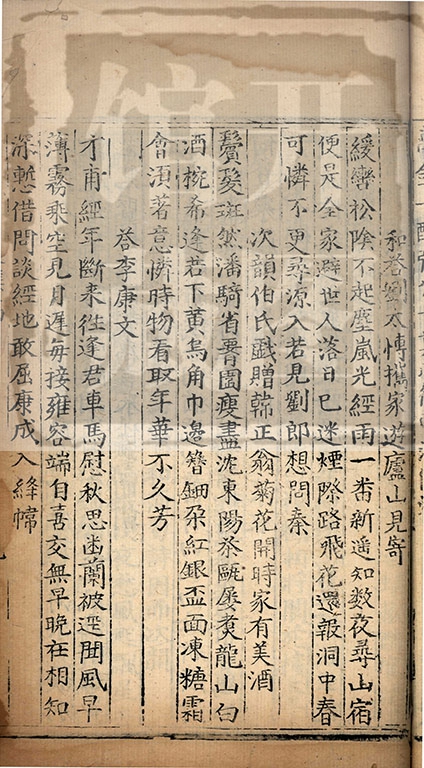 和答劉太博攜家遊廬山見寄
緩轡松陰不起塵嵐光經雨一番新遥知数夜尋山宿
便是全家避世人落日已迷煙際路飛花還報洞中春
可憐不更尋源入若見劉郎想問秦
次韻伯氏戲贈韓正翁菊花開時家有美酒
鬢髮斑然潘騎省圍瘦盡沈東陽茶甌屢煑龍山白
酒椀希逢若下黄烏角巾邊簪鈿朶紅銀盃面凍糖霜
會須著意憐時物看取年華不久芳
答李康文
才甫經年斷来徃逢君車馬慰秋思幽蘭被逕聞風早
薄霧乘空見月遲每接雍容端自喜交無早晚在相知
深慙借問談經地敢屈康成入絳幃